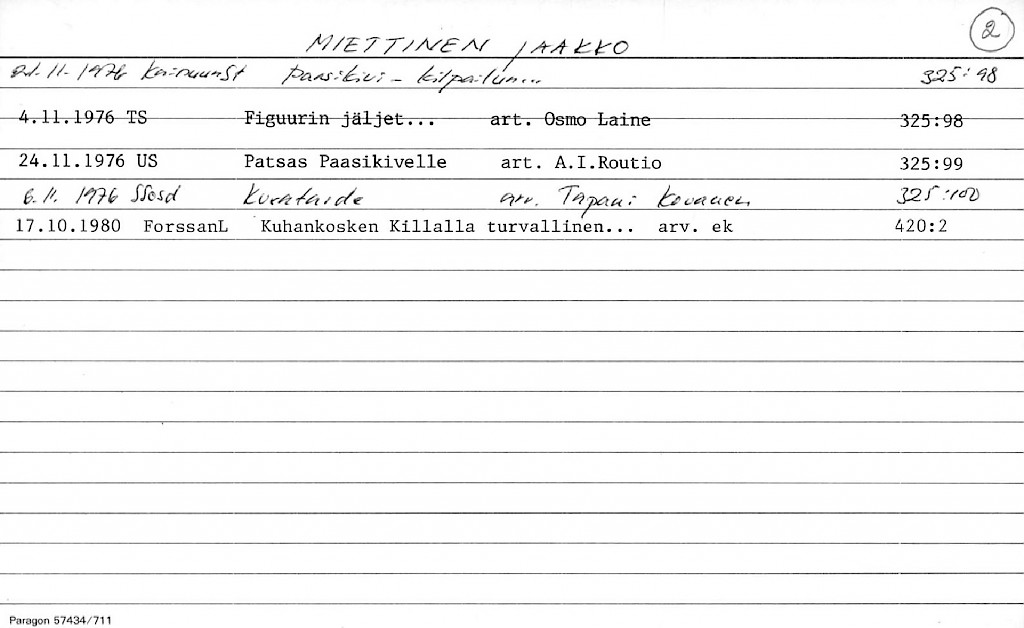 2
MIETTINEN JAAKKO
11.1976 KainuunSt Paasikivi-kilpailun... 325:98
4.11.1976 TS Figuurin jäljet... art. Osmo Laine 325:98
24.11.1976 US Patsas Paasikivelle art. A.I.Routio 325:99
6.11.1976 SSosd Kuvataide arv. Tapani Kovanen 325:100
17.10.1980 ForssanL Kuhankosken Killalla turvallinen... arv. ek 420:2
Paragon 57434/711